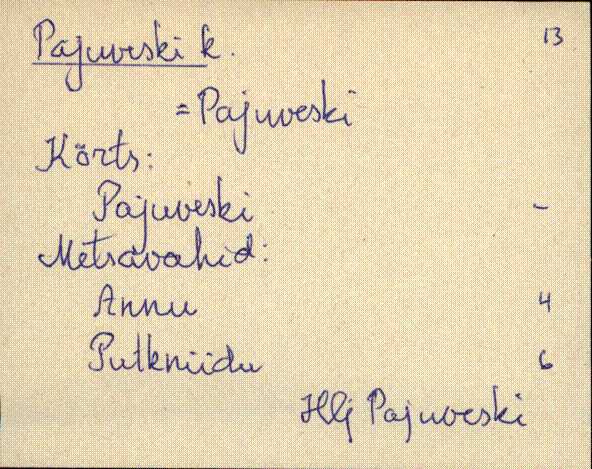 Pajuveski k. 13
= Pajuveski
Kõrts:
Pajuveski -
Metsavahid:
Annu 4
Putkniidu 6
Hlj Pajuveski